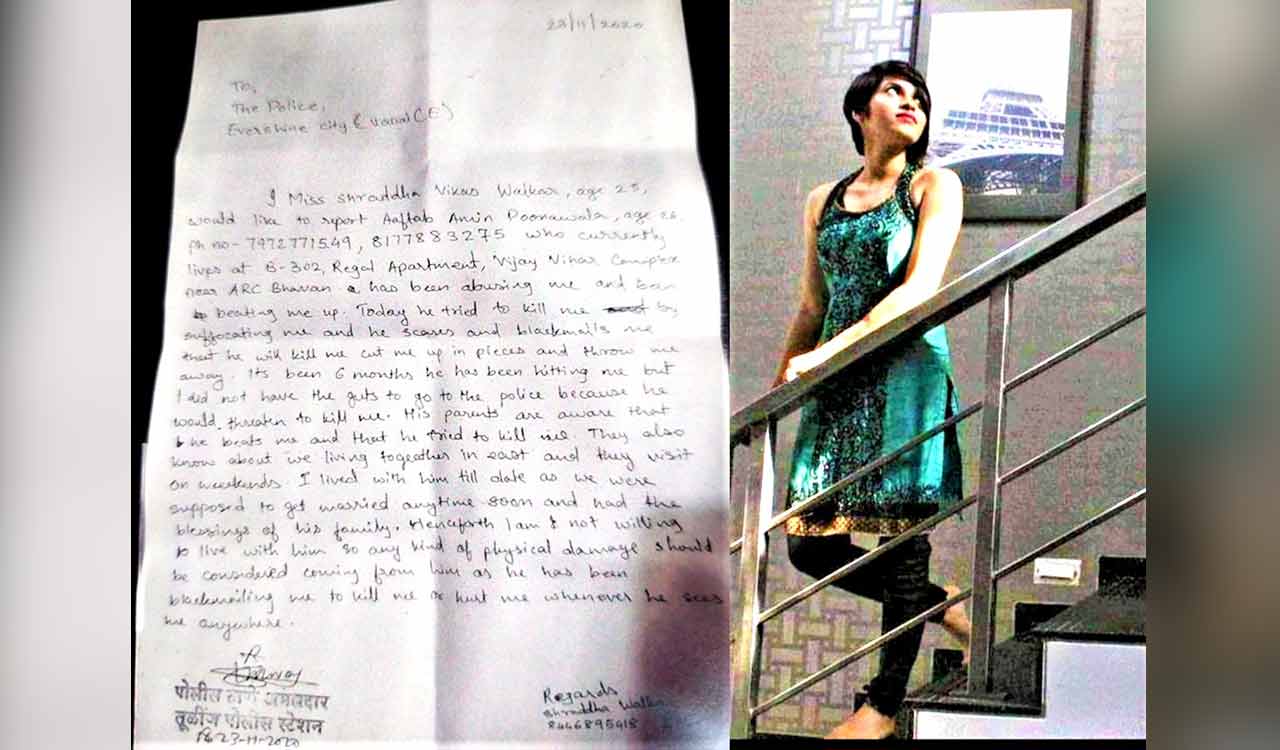 23/11/2020
To,
The Police,
Evershine city (Vasai (E)
I Miss Shraddha Vikas Walkar, age 25,
would like to report Aaftab Amin Poonawala, age 26.
ph no- 7972771549, 8177883275 who currently
lives at B-302, Regal Apartment, Vijay Vihar Complex
near ARC Bhavan has been abusing me and been
beating me up. Today he tried to kill me by
suffocating me and he scares and blackmails me
that he will kill me cut me up in pieces and throw me
away. Its been 6 months he has been hitting me but
I did not have the guts to go to the police because he
would threaten to kill me. His parents are aware that
he beats me and that he tried to kill me. They also
know about we living togeather in and they visit
on weekends. I lived with him till date as we were
supposed to get married anytime soon and had the
blessings of his family. Henceforth I am not willing
to live with him so any kind of physical damage should
be considered coming from him as he has been
blackmailing me to kill me or hurt me whenever he sees
me anywhere.
पोलीस ठाणे अंमलदार
तुळींज पोलीस स्टेशन
23-11-2020
Regards
Shraddha Walkar
8446895418